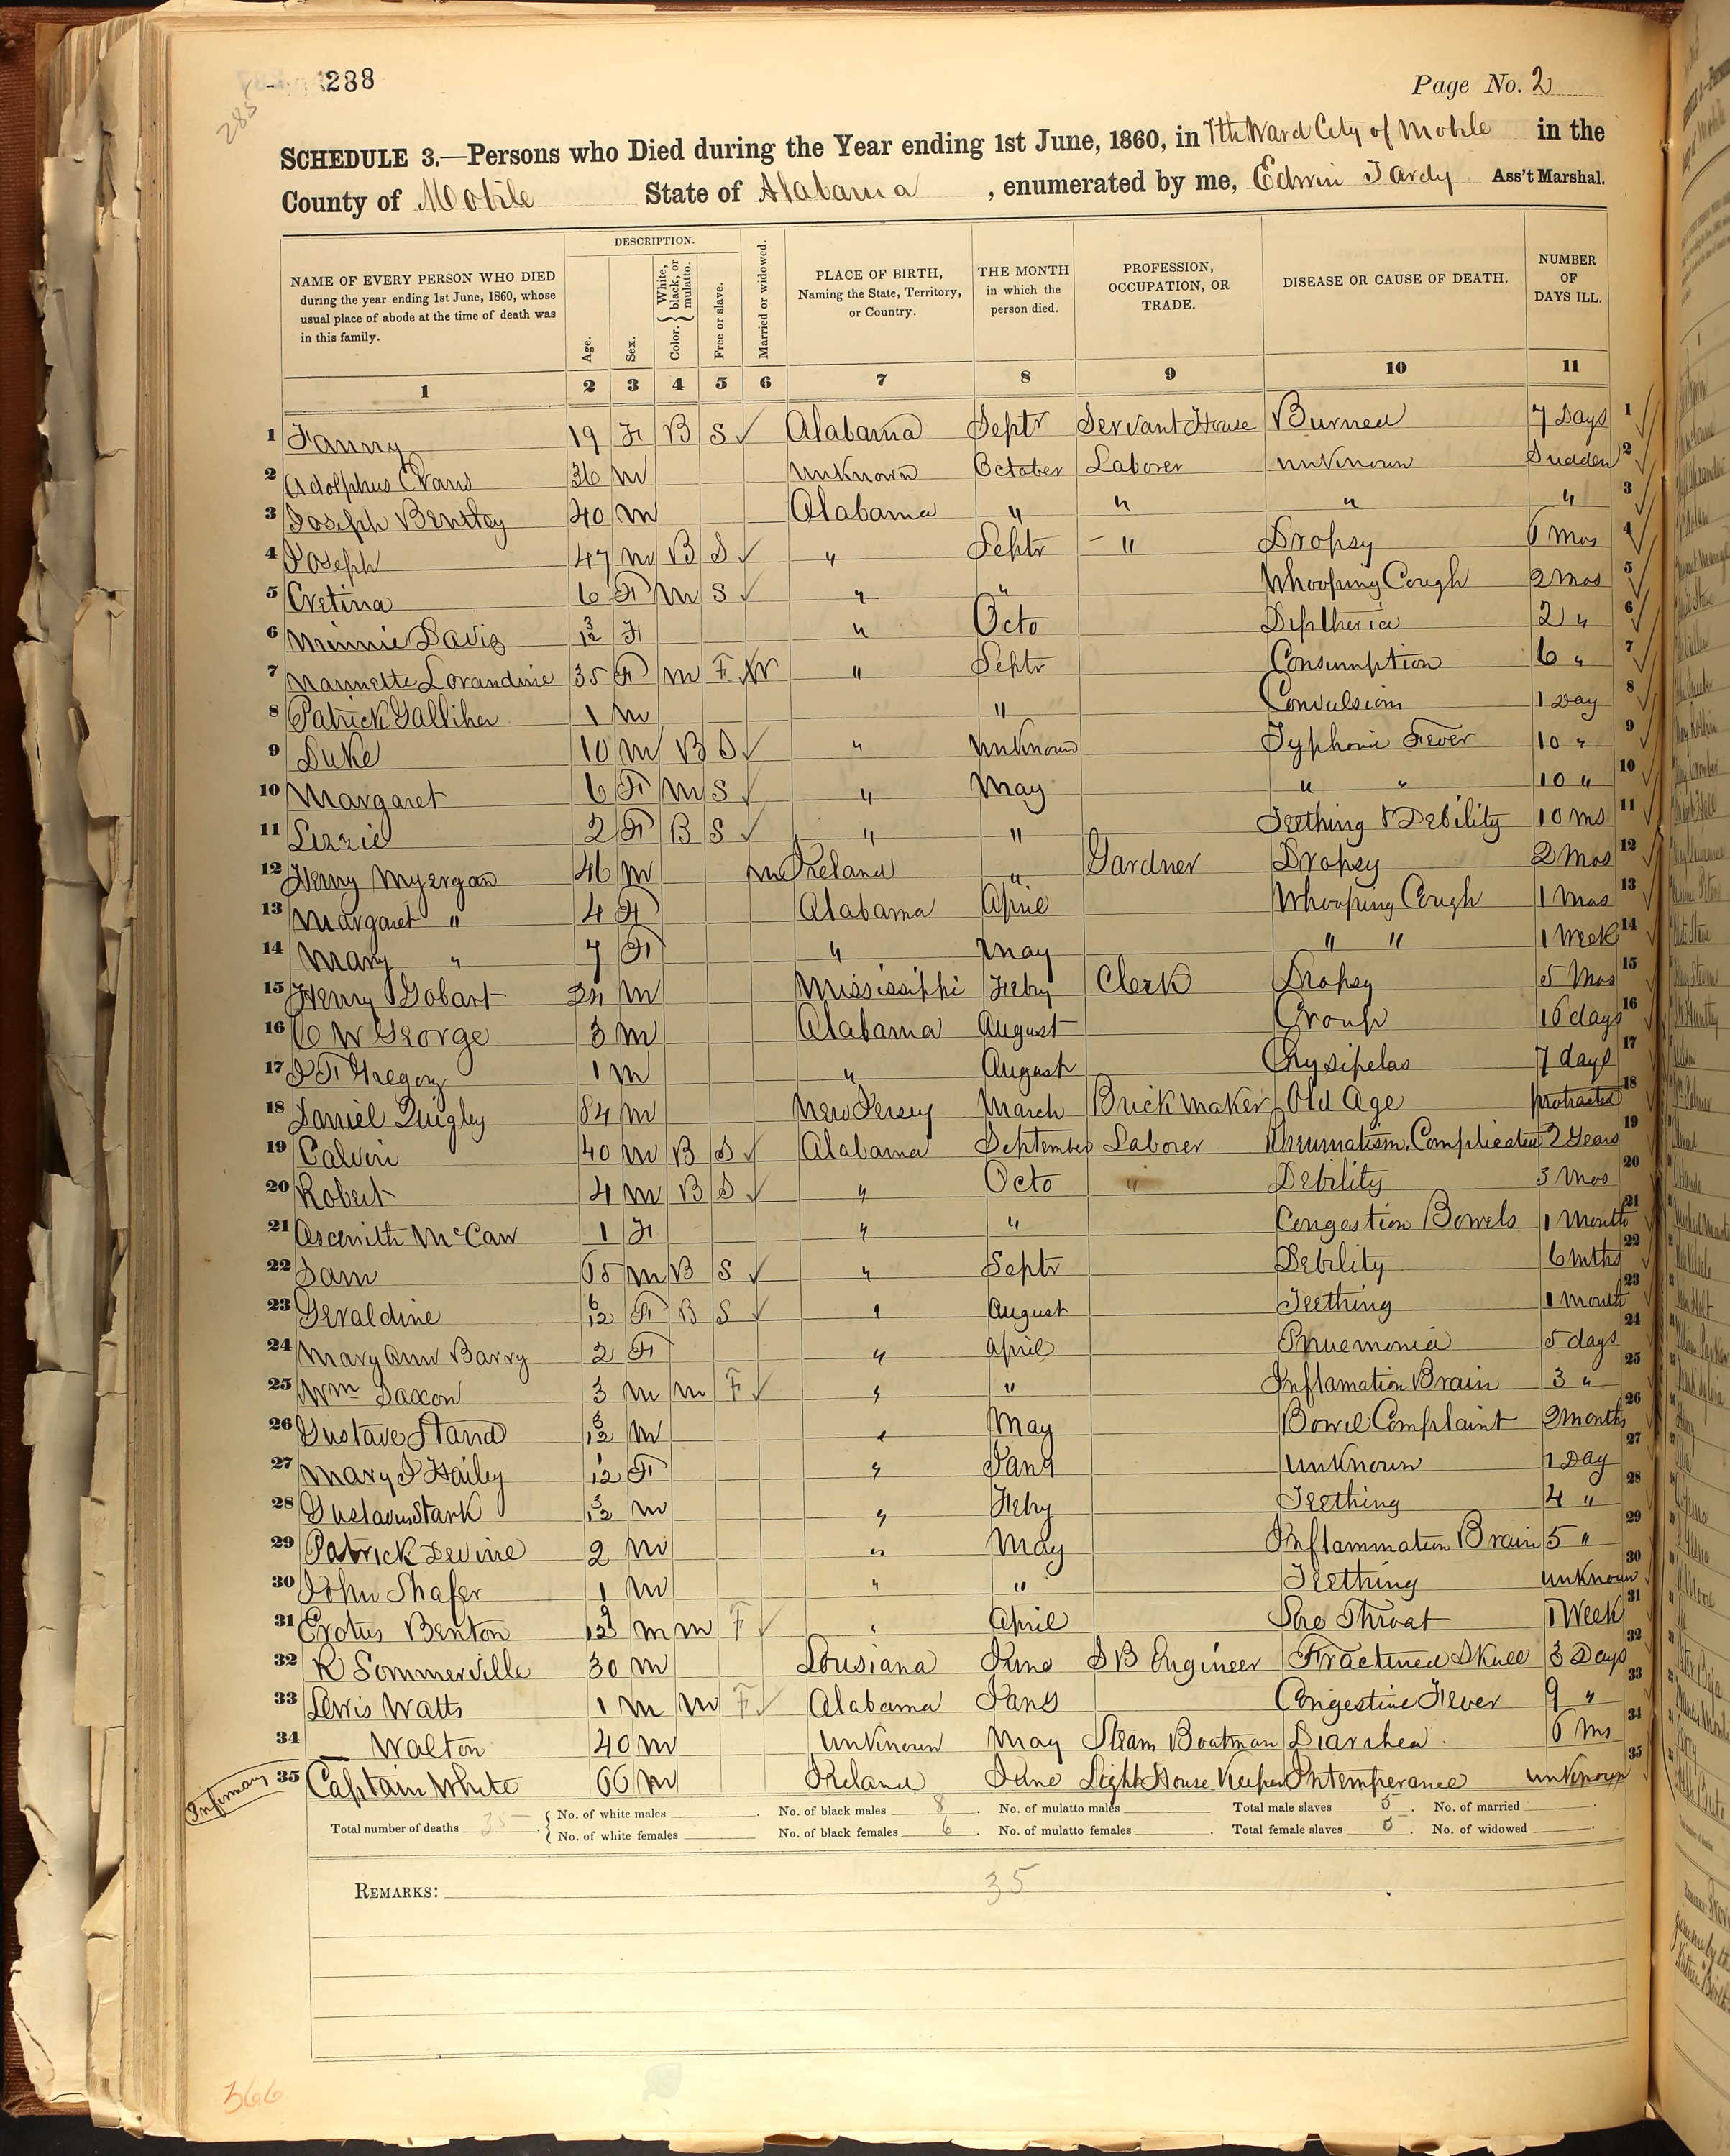 288
285
Page No. 2
SCHEDULE 3.—Persons who Died during the Year ending 1st June, 1860, in 7th Ward City of Mobile in the
County of Mobile State of Alabama, enumerated by me, Edwin Tardy Ass't Marshal.
NAME OF EVERY PERSON WHO DIED during the year ending 1st June, 1860, whose usual place of abode at the time of death was in this family.
DESCRIPTION.
Age.
Sex.
Color. { White, black, or mulatto.
Free or slave.
Married or widowed.
PLACE OF BIRTH, Naming the State, Territory, or Country.
THE MONTH in which the person died.
PROFESSION, OCCUPATION, OR TRADE.
DISEASE OR CAUSE OF DEATH.
NUMBER OF DAYS ILL.
1 2 3 4 5 6 7 8 9 10 11
1 Fanny 19 F B S ✓ Alabama Septr Servant House Burned 7 Days 1
2 Adolphus Evans 36 m Unknown October Laborer unknown Sudden 2
3 Joseph Bentley 40 m Alabama " " " " 3
4 Joseph 47 m B S ✓ " Septr " Dropsy 6 mos 4
5 Cretina 6 F m S ✓ " " Whooping Cough 2 mos 5
6 Minnie Davis 3/12 F " Octo Diptheria 2 " 6
7 Nannette Lorandine 35 F m F " Septr Consumption 6 " 7
8 Patrick Galliher 1 m " Convulsions 1 Day 8
9 Duke 10 m B S ✓ " unknown Typhoid Fever 10 " 9
10 Margaret 6 F m S ✓ " May " " 10 " 10
11 Lizzie 2 F B S ✓ " " Teething & Debility 10 ms 11
12 Henry Myergan 46 m m Ireland " Gardner Dropsy 2 mos 12
13 Margaret " 4 F Alabama April Whooping Cough 1 mos 13
14 Mary " 7 F " May " " 1 Week 14
15 Henry Gobart 24 m Mississippi Feby Clerk Dropsy 5 Mos 15
16 C W George 3 m Alabama August Croup 16 days 16
17 J F Gregory 1 m " August Erysipelas 7 days 17
18 Daniel Quigley 84 m New Jersey March Brick maker Old Age protracted 18
19 Calvin 40 m B S ✓ Alabama September Laborer Rheumatism, Complicated 2 Years 19
20 Robert 4 m B S ✓ " Octo " Debility 3 mos 20
21 Ascenith McCaw 1 F " " Congestion Bowels 1 month 21
22 Sam 65 m B S ✓ " Septr Debility 6 mths 22
23 Geraldine 6/12 F B S ✓ " August Teething 1 month 23
24 Mary Ann Barry 2 F " April Pnuemonia 5 days 24
25 Wm Saxon 3 m m F ✓ " " Inflamation Brain 3 " 25
26 Gustave Stand /12 m " May Bowel Complaint 2 months 26
27 Mary J Hailey 1/12 F " Jany unknown 1 Day 27
28 Gustavus Stark /12 m " Feby Teething 4 " 28
29 Patrick Devine 2 m " May Inflammation Brain 5 " 29
30 John Shafer 1 m " " Teething unknown 30
31 Erotus Benton 9/12 m m F ✓ " April Sore Throat 1 Week 31
32 R Sommerville 30 m Lousiana June S B Engineer Fractured Skull 3 Days 32
33 Lewis Watts 1 m m F ✓ Alabama Jany Congestive Fever 9 " 33
34 — Walton 40 m unknown May Steam Boatman Diarrhea 6 ms 34
Infirmary 35 Captain White 66 m Ireland June Light House Keeper Intemperance unknown 35
Total number of deaths 35 { No. of white males No. of black males 8 No. of mulatto males Total male slaves 5 No. of married
No. of white females No. of black females 6 No. of mulatto females Total female slaves 5 No. of widowed
REMARKS: 35
366